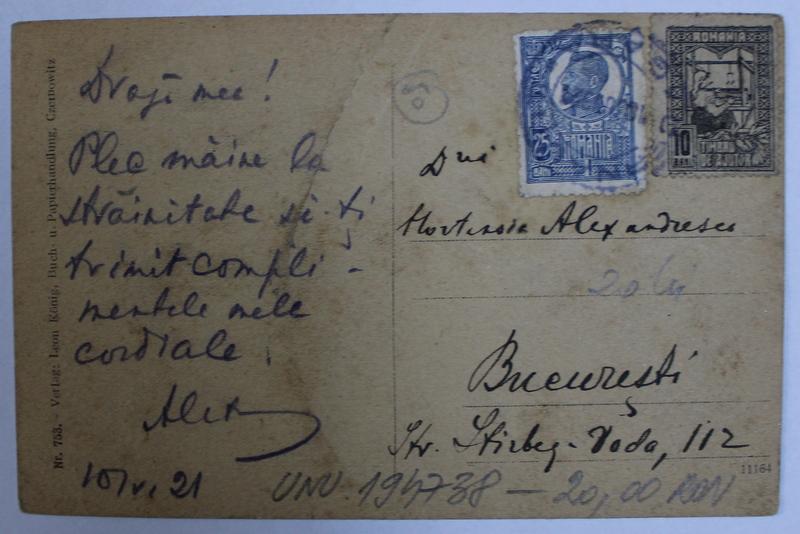 Nr. 753. - Verlag: Leon König, Buch- u. Papierhandlung, Czernowitz
Dragi mei!
Plec mâine la
străinitate și-ți
trimit compli-
mentele mele
cordiale!
Alex
10/V. 21
25
BANI
ROMANIA
ROMANIA
10
BANI
TIMBRU
DE AJUTOR
Hortensia Alexandrescu
20 lei
București
Str. Știrbey-Voda, 112
11164
UNU. 194738 — 20,00 RON